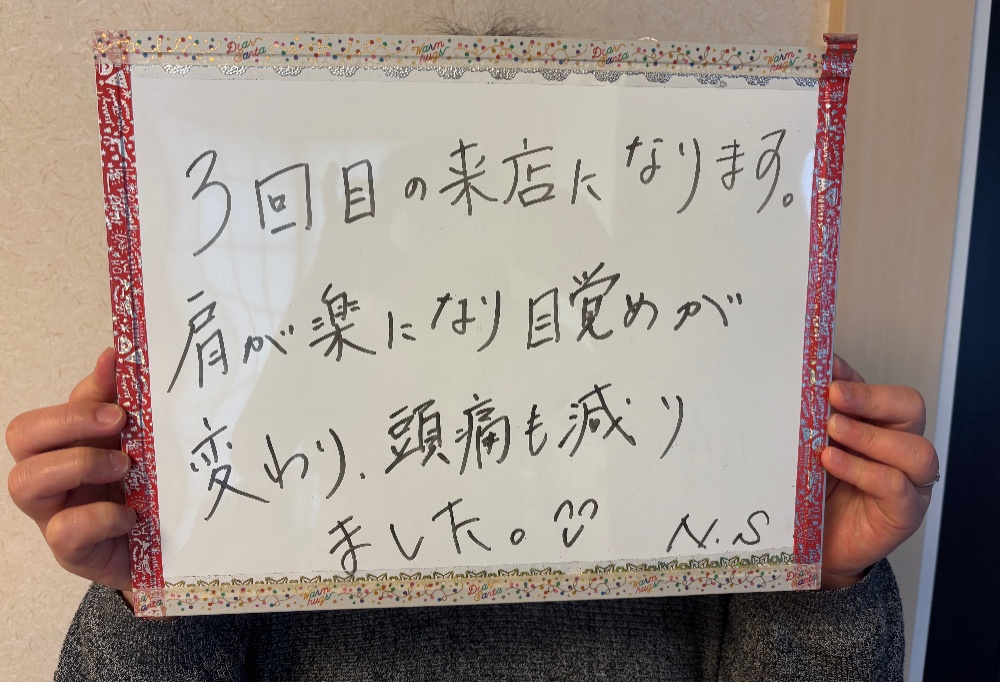 Dear Santa
Warm hugs
Dear Santa
Warm hugs
3回目の来店になります。
肩が楽になり目覚めが
変わり、頭痛も減り
ました。
N.S
Dear Santa
Warm hugs
Dear Santa
Warm hugs
Dear Santa